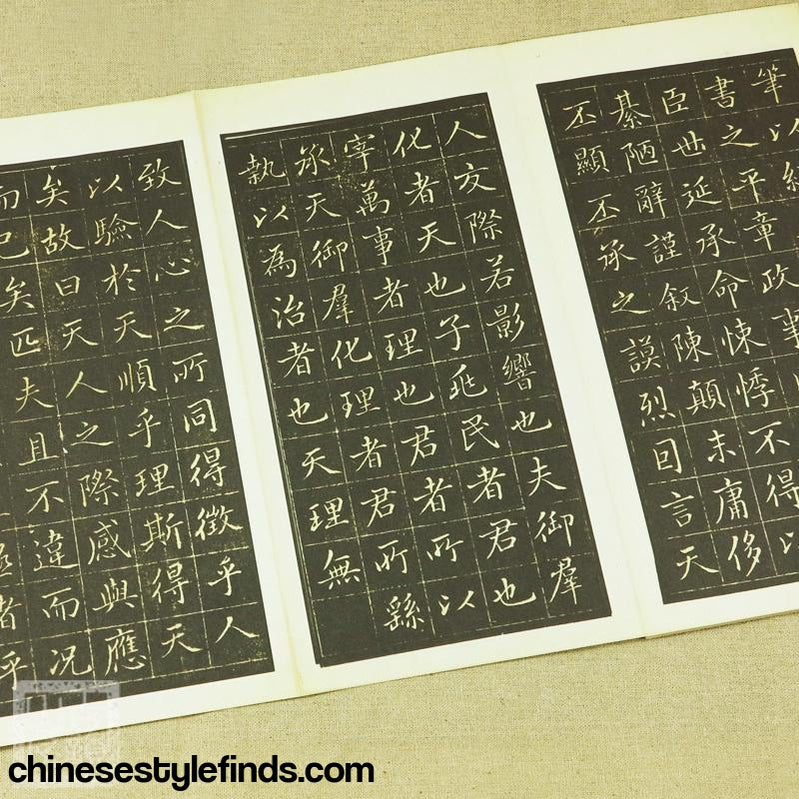 筆以
書之平章政事
臣世延承命悚悸不得以
綦陋辭謹叙陳顛末庸侈
丕顯丕承之謨烈囙言天
人交際若影響也夫御羣
化者天也子兆民者君也
宰萬事者理也君者所以
承天御羣化理者君所繇
執以為治者也天理無
致人心之所同得徵乎人
以驗於天順乎理斯得天
矣故曰天人之際感與應
而已矣匹夫且不違而況
者乎
chinesestylefinds.com